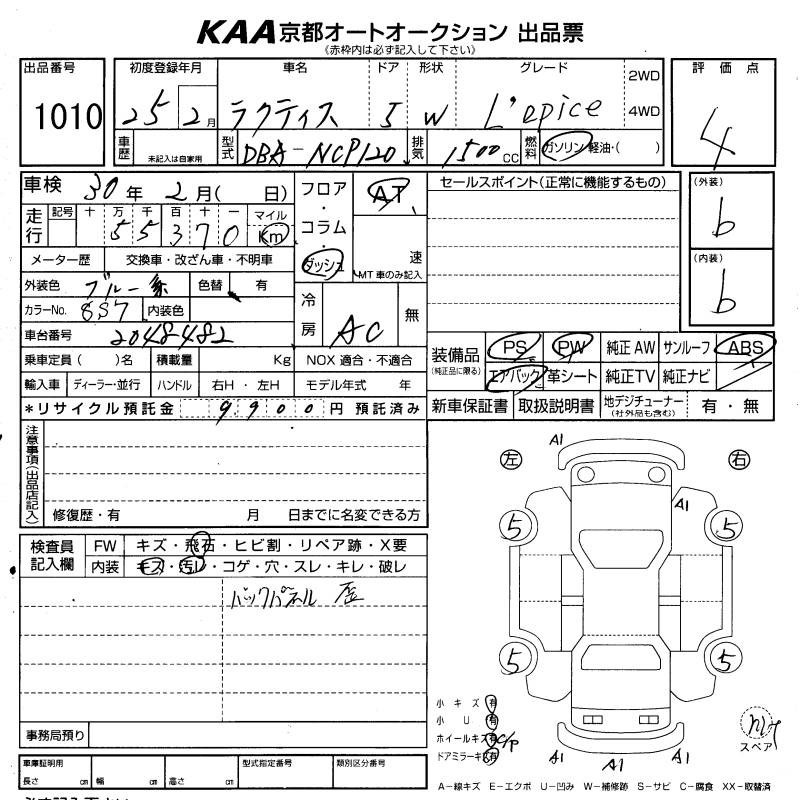 KAA京都オートオークション 出品票
《赤枠内は必ず記入して下さい》
出品番号 初度登録年月 車名 ドア 形状 グレード 2WD 4WD 評価点
1010 25 2月 ラクティス 5 W L'epice 4
車歴 未記入は自家用 型式 DBA-NCP120 排気 1500CC 燃料 ガソリン・軽油・( )
車検 30年 2月( 日) フロア・コラム・ダッシュ AT
セールスポイント(正常に機能するもの) (外装) b
走行 記号 十 万 千 百 十 一 マイル
55370 Km 速 MT車のみ記入
メーター歴 交換車・改ざん車・不明車
(内装) b
外装色 ブルー系 色替 有
カラーNo. 8S7 内装色 冷房 AC 無
車台番号 2048482
装備品 (純正品に限る) PS PW 純正AW サンルーフ ABS
乗車定員( )名 積載量 Kg NOX 適合・不適合
エアバック 革シート 純正TV 純正ナビ
輸入車 ディーラー・並行 ハンドル 右H・左H モデル年式 年
*リサイクル預託金 9900 円 預託済み
新車保証書 取扱説明書 地デジチューナー (社外品も含む) 有・無
注意事項(出品店記入)
修復歴・有 月 日までに名変できる方
検査員記入欄 FW キズ・飛石・ヒビ割・リペア跡・X要
内装 キズ・汚レ・コゲ・穴・スレ・キレ・破レ
バックパネル 歪
左 右
A1
A1
5 5
5 5
小キズ有
小U有
ホイールキズ有 C/P
ドアミラーキズ有
A1 A1 A1
スペア
事務局預り
車庫証明用 長さ cm 幅 cm 高さ cm 型式指定番号 類別区分番号
A-線キズ E-エクボ U-凹み W-補修跡 S-サビ C-腐食 XX-取替済